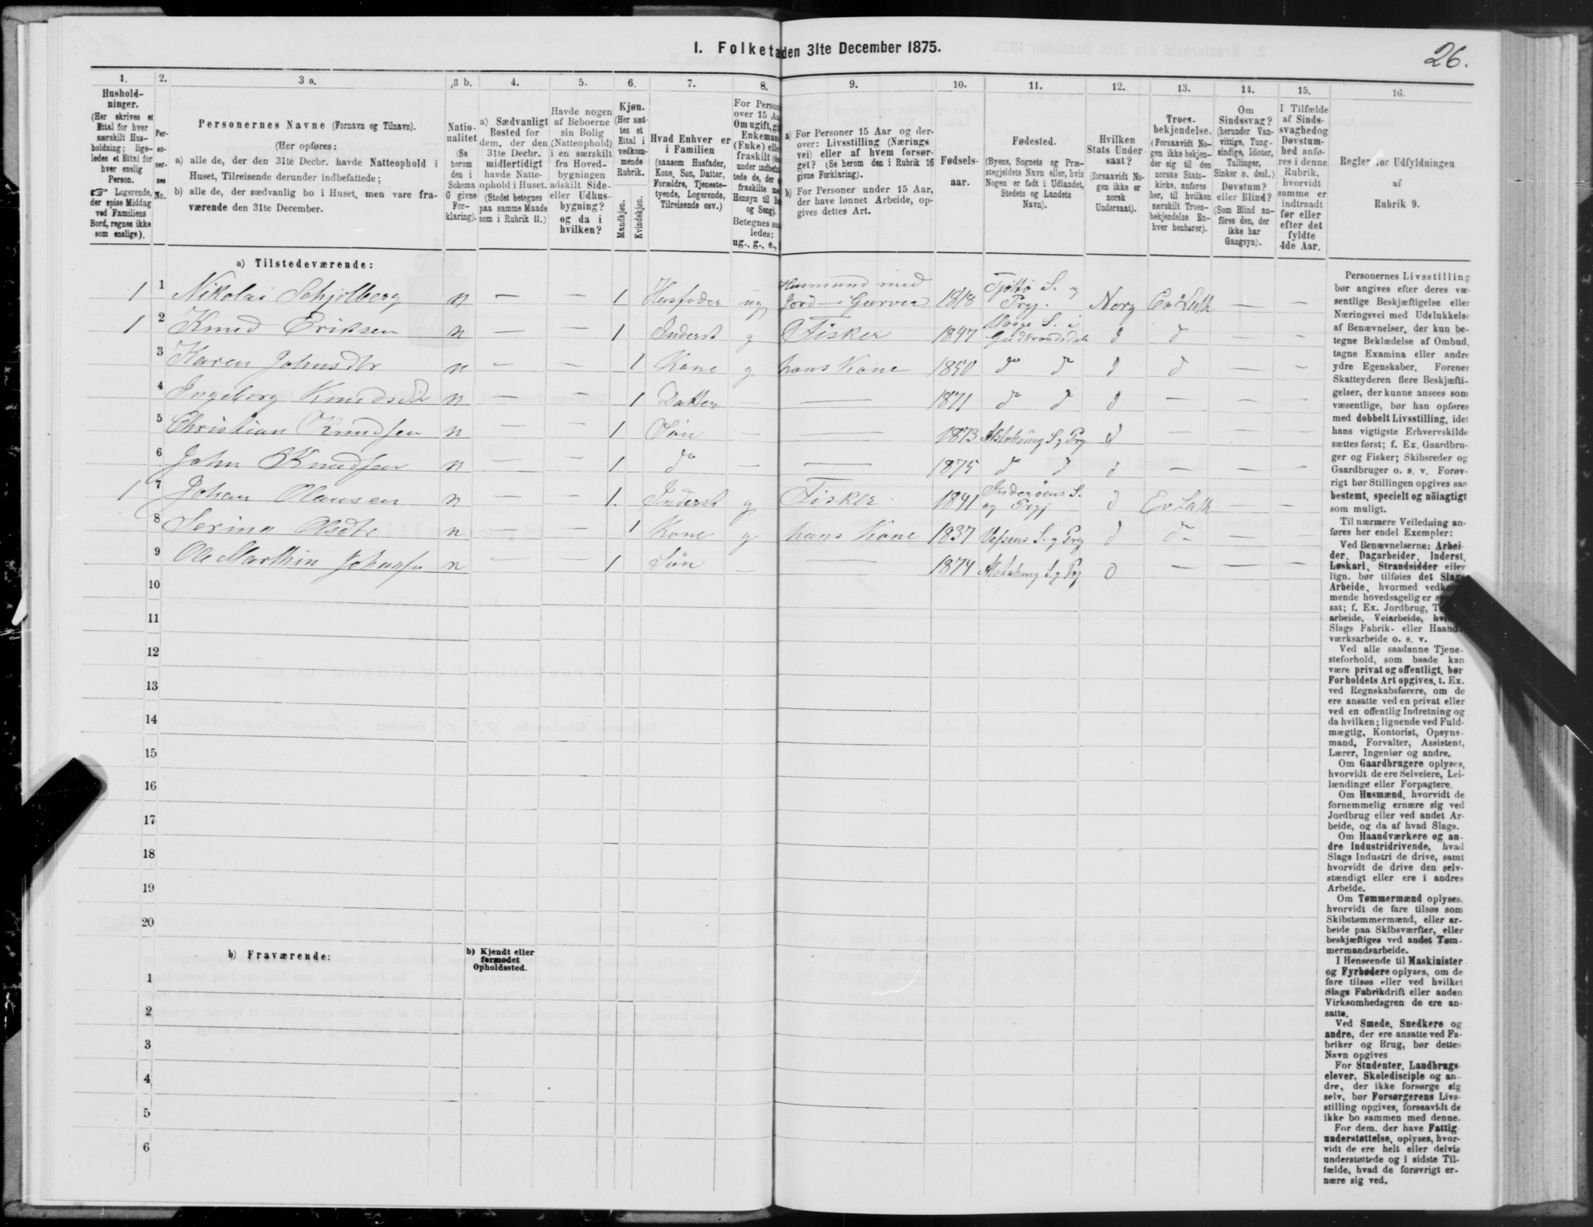 I. Folketa den 31te December 1875.
26.
1.
2.
3 a.
3 b.
4.
5.
6.
7.
8.
9.
10.
11.
12.
13.
14.
15.
16.
Hushold-
ninger.
(Her skrives et
Ettal for hver
særskilt Hus-
holdning; lige-
ledes et Ettal for
hver enslig
Person.
☞ Logerende,
der spise Middag
ved Familiens
Bord, regnes ikke
som enslige).
Per-
so-
ner-
nes
No.
Personernes Navne (Fornavn og Tilnavn).
(Her opføres:
a) alle de, der den 31te Decbr. havde Natteophold i
Huset, Tilreisende derunder indbefattede;
b) alle de, der sædvanlig bo i Huset, men vare fra-
værende den 31te December.
Natio-
nalitet
(Se
herom
den i
Schema
0 givne
For-
klaring).
a) Sædvanligt
Bosted for
dem, der den
31te Decbr.
midlertidigt
havde Natte-
ophold i Huset.
(Stedet betegnes
paa samme Maade
som i Rubrik 11.)
Havde nogen
af Beboerne
sin Bolig
(Natteophold)
i en særskilt
fra Hoved-
bygningen
adskilt Side-
eller Udhus-
bygning?
og da i
hvilken?
Kjøn.
(Her sæt-
tes et
Ettal i
vedkom-
mende
Rubrik.
Mandkjøn.
Kvindekjøn.
Hvad Enhver er
i Familien
(saasom Husfader,
Kone, Søn, Datter,
Forældre, Tjeneste-
tyende, Logerende,
Tilreisende osv.)
For Person
over 15 Aa
Om ugift, gi
Enkemand
(Enke) eller
fraskilt
under indbefat
tede de, der
fraskilte m
Hensyn til B
og Seng).
Betegnes saa
ledes:
ug., g., e.,
a) For Personer 15 Aar og der-
over: Livsstilling (Nærings
vei) eller af hvem forsør-
get? (Se herom den i Rubrik 16
givne Forklaring).
b) For Personer under 15 Aar,
der have lønnet Arbeide, op-
gives dettes Art.
Fødsels-
aar.
Fødested.
(Byens, Sognets og Præ-
stegjeldets Navn eller, hvis
Nogen er født i Udlandet,
Stedets og Landets
Navn).
Hvilken
Stats Under-
saat?
(forsaavidt No-
gen ikke er
norsk
Undersaat).
Troes-
bekjendelse.
(Forsaavidt No-
gen ikke bekjen-
der sig til den
norske Stats-
kirke, anføres
her, til hvilken
særskilt Troes-
bekjendelse En-
hver henhører).
Om
Sindssvag?
(herunder Van-
vittige, Tung-
sindige, Idioter,
Tullinger,
Sinker o. desl.)
Døvstum?
eller Blind?
(Som Blind an-
føres den, der
ikke har
Gangsyn).
I Tilfælde
af Sinds-
svaghedog
Døvstum-
hed anfø-
res i denne
Rubrik,
hvorvidt
samme er
indtraadt
før eller
efter det
fyldte
4de Aar.
Regler for Udfyldningen
af
Rubrik 9.
a) Tilstedeværende:
1 1 Nikolai Schjelberg n — — 1 Husfader ug Husmand med Jord — Garver 1818 Tjøttø S. og Prgj. Norg Ev Luth — —
1 2 Knud Eriksen n — — 1 Inderst g Fisker 1847 Vaage S. i Gudbrandsdale d d — —
3 Karen Johnsdtr n — — 1 Kone g hans Kone 1850 do d d d — —
4 Ingeborg Knudsdtr n — — 1 Datter — — 1871 d d d — — —
5 Christian Knudsen n — — 1 Søn 1873 Alstahaug S. g Prg d — — —
6 John Knudsen n — — 1 do — — 1875 d d d — — —
1 7 Johan Olausen n — — 1. Inderst g Fisker. 1841 Inderøens S. og Prgj d Ev Luth — —
8 Serine Olsdtr n — — 1 Kone g hans Kone 1837 Vefsens S. g Prg d d — —
9 Ole Marthin Johansn n — — 1 Søn — 1874 Alstahaug S. g Prg d — — —
10
11
12
13
14
15
16
17
18
19
20
b) Fraværende:
b) Kjendt eller
formodet
Opholdssted.
1
2
3
4
5
6
Personernes Livsstilling
bør angives efter deres væ-
sentlige Beskjæftigelse eller
Næringsvei med Udelukkelse
af Benævnelser, der kun be-
tegne Beklædelse af Ombud,
tagne Examina eller andre
ydre Egenskaber. Forener
Skatteyderen flere Beskjæfti-
gelser, der kunne ansees som
væsentlige, bør han opføres
med dobbelt Livsstilling, idet
hans vigtigste Erhvervskilde
sættes først; f. Ex. Gaardbru-
ger og Fisker; Skibsreder og
Gaardbruger o. s. v. Forøv-
rigt bør Stillingen opgives saa
bestemt, specielt og nøiagtigt
som muligt.
Til nærmere Veiledning an-
føres her endel Exempler:
Ved Benævnelserne: Arbei-
der, Dagarbeider, Inderst,
Løskarl, Strandsidder eller
lign. bør tilføies det Slags
Arbeide, hvormed vedkom-
mende hovedsagelig er
sat; f. Ex. Jordbrug,
arbeide, Veiarbeide,
Slags Fabrik- eller Haand-
værksarbeide o. s. v.
Ved alle saadanne Tjene-
steforhold, som baade kan
være privat og offentligt, bør
Forholdets Art opgives, t. Ex.
ved Regnskabsførere, om de
ere ansatte ved en privat eller
ved en offentlig Indretning og
da hvilken; lignende ved Fuld-
mægtig, Kontorist, Opsyns-
mand, Forvalter, Assistent,
Lærer, Ingeniør og andre.
Om Gaardbrugere oplyses,
hvorvidt de ere Selveiere, Lei-
lændinge eller Forpagtere.
Om Husmænd, hvorvidt de
fornemmelig ernære sig ved
Jordbrug eller ved andet Ar-
beide, og da af hvad Slags.
Om Haandværkere og an-
dre Industridrivende, hvad
Slags Industri de drive, samt
hvorvidt de drive den selv-
stændigt eller ere i andres
Arbeide.
Om Tømmermænd oplyses,
hvorvidt de fare tilsøs som
Skibstømmermænd, eller ar-
beide paa Skibsværfter, eller
beskjæftiges ved andet Tøm-
mermandsarbeide.
I Henseende til Maskinister
og Fyrbødere oplyses, om de
fare tilsøs eller ved hvilket
Slags Fabrikdrift eller anden
Virksomhedsgren de ere an-
satte.
Ved Smede, Snedkere og
andre, der ere ansatte ved Fa-
briker og Brug, bør dettes
Navn opgives
For Studenter, Landbrugs-
elever, Skoledisciple og an-
dre, der ikke forsørge sig
selv, bør Forsørgerens Livs-
stilling opgives, forsaavidt de
ikke bo sammen med denne.
For dem, der have Fattig-
understøttelse, oplyses, hvor-
vidt de ere helt eller delvis
understøttede og i sidste Til-
fælde, hvad de forøvrigt er-
nære sig ved.